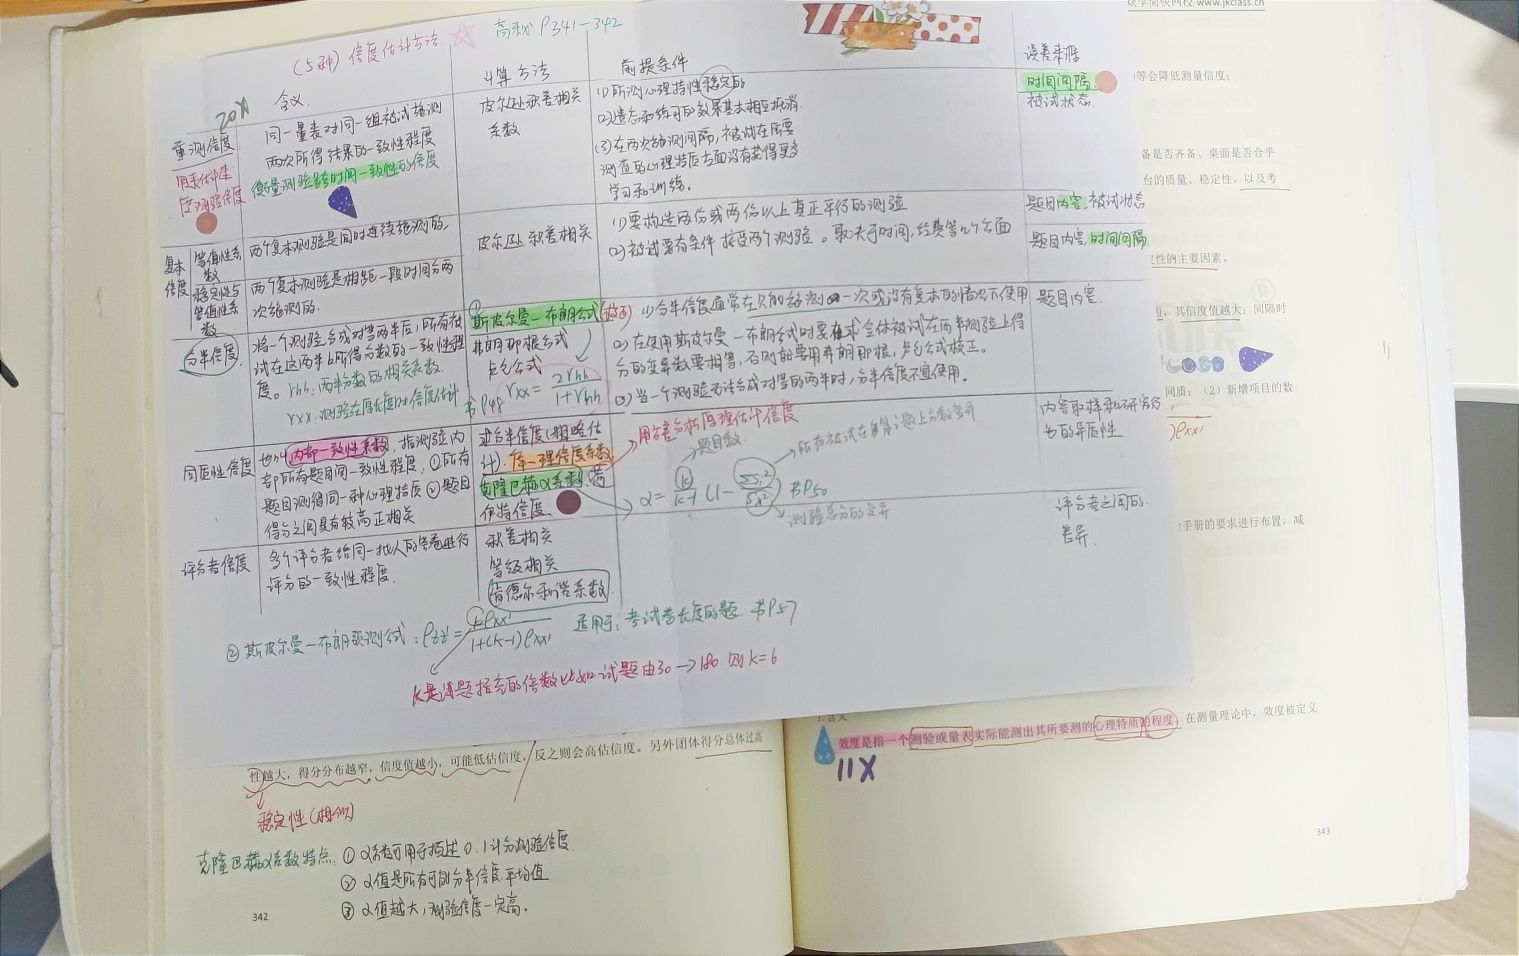 众学简快网校 www.jkclass.cn
(5种) 信度估计方法 高教 P341-342
20X 含义 计算方法 前提条件 误差来源
重测信度
用来估计速度测验信度
同一量表对同一组被试施测
两次所得结果的一致性程度
衡量测验跨时间一致性的信度
皮尔逊积差相关
系数
(1)所测心理特性稳定的
(2)遗忘和练习的效果基本相互抵消.
(3)在两次施测间隔,被试在所要
测查的心理特质方面没有获得更多
学习和训练。
时间间隔.
被试状态.
复本信度
等值性系数
两个复本测验是同时连续施测的,
稳定性与等值性系数
两个复本测验是相距一段时间分两
次施测的.
皮尔逊积差相关
(1)要构造两份或两份以上真正平行的测验
(2)被试要有条件接受两个测验。取决于时间,经费等几个方面
题目内容.被试状态
题目内容,时间间隔
分半信度.
将一个测验分成对等两半后,所有被
试在这两半上所得分数的一致性程
度。rhh:两半分数的相关系数.
rxx:测验在原长度时信度估计
①
斯皮尔曼一布朗公式(校正)
弗朗那根公式
卢仑公式
书P48 rxx = 2rhh / 1+rhh
(1)分半信度通常在只能施测一次或没有复本的情况下使用
(2)在使用斯皮尔曼一布朗公式时要求全体被试在两半测验上得
分的变异数要相等,否则就要用弗朗那根,卢仑公式校正。
(3)当一个测验无法分成对等的两半时,分半信度不宜使用。
题目内容.
同质性信度
也叫内部一致性系数,指测验内
部所有题目间一致性程度.①所有
题目测得同一种心理特质②题目
得分之间具有较高正相关
求分半信度(粗略估
计).库一理信度系数
克隆巴赫α系数.荷
伊特信度
用方差分析原理估计信度
题目数.
所有被试在各第i题上分数变异
α= k/k-1 (1- ΣSi²/Sx²) 书P50
测验总分的变异
内容取样和所研究行
为的异质性
评分者信度
多个评分者给同一批人的答卷进行
评分的一致性程度.
积差相关
等级相关
肯德尔和谐系数.
评分者之间的.
差异.
②斯皮尔曼一布朗预测公式:ρzz'= kρxx' / 1+(k-1)ρxx' 适用于:考试考长度的题. 书P57
K是译题扩充的倍数比如试题由30→180 则k=6
等会降低测量信度;
备是否齐备、桌面是否合乎
台的质量、稳定性,以及考
定性的主要因素。
,其信度值越大;间隔时
同质;(2)新增项目的数
手册的要求进行布置,减
性越大,得分分布越窄,信度值越小,可能低估信度,反之则会高估信度。另外团体得分总体过高
稳定性(相似)
克隆巴赫α系数特点.
①α系数可用于描述0.1计分测验信度.
②α值是所有可能分半信度平均值
③α值越大,测验信度一定高.
342
效度是指一个测验或量表实际能测出其所要测的心理特质的程度。在测量理论中,效度被定义
11X
343